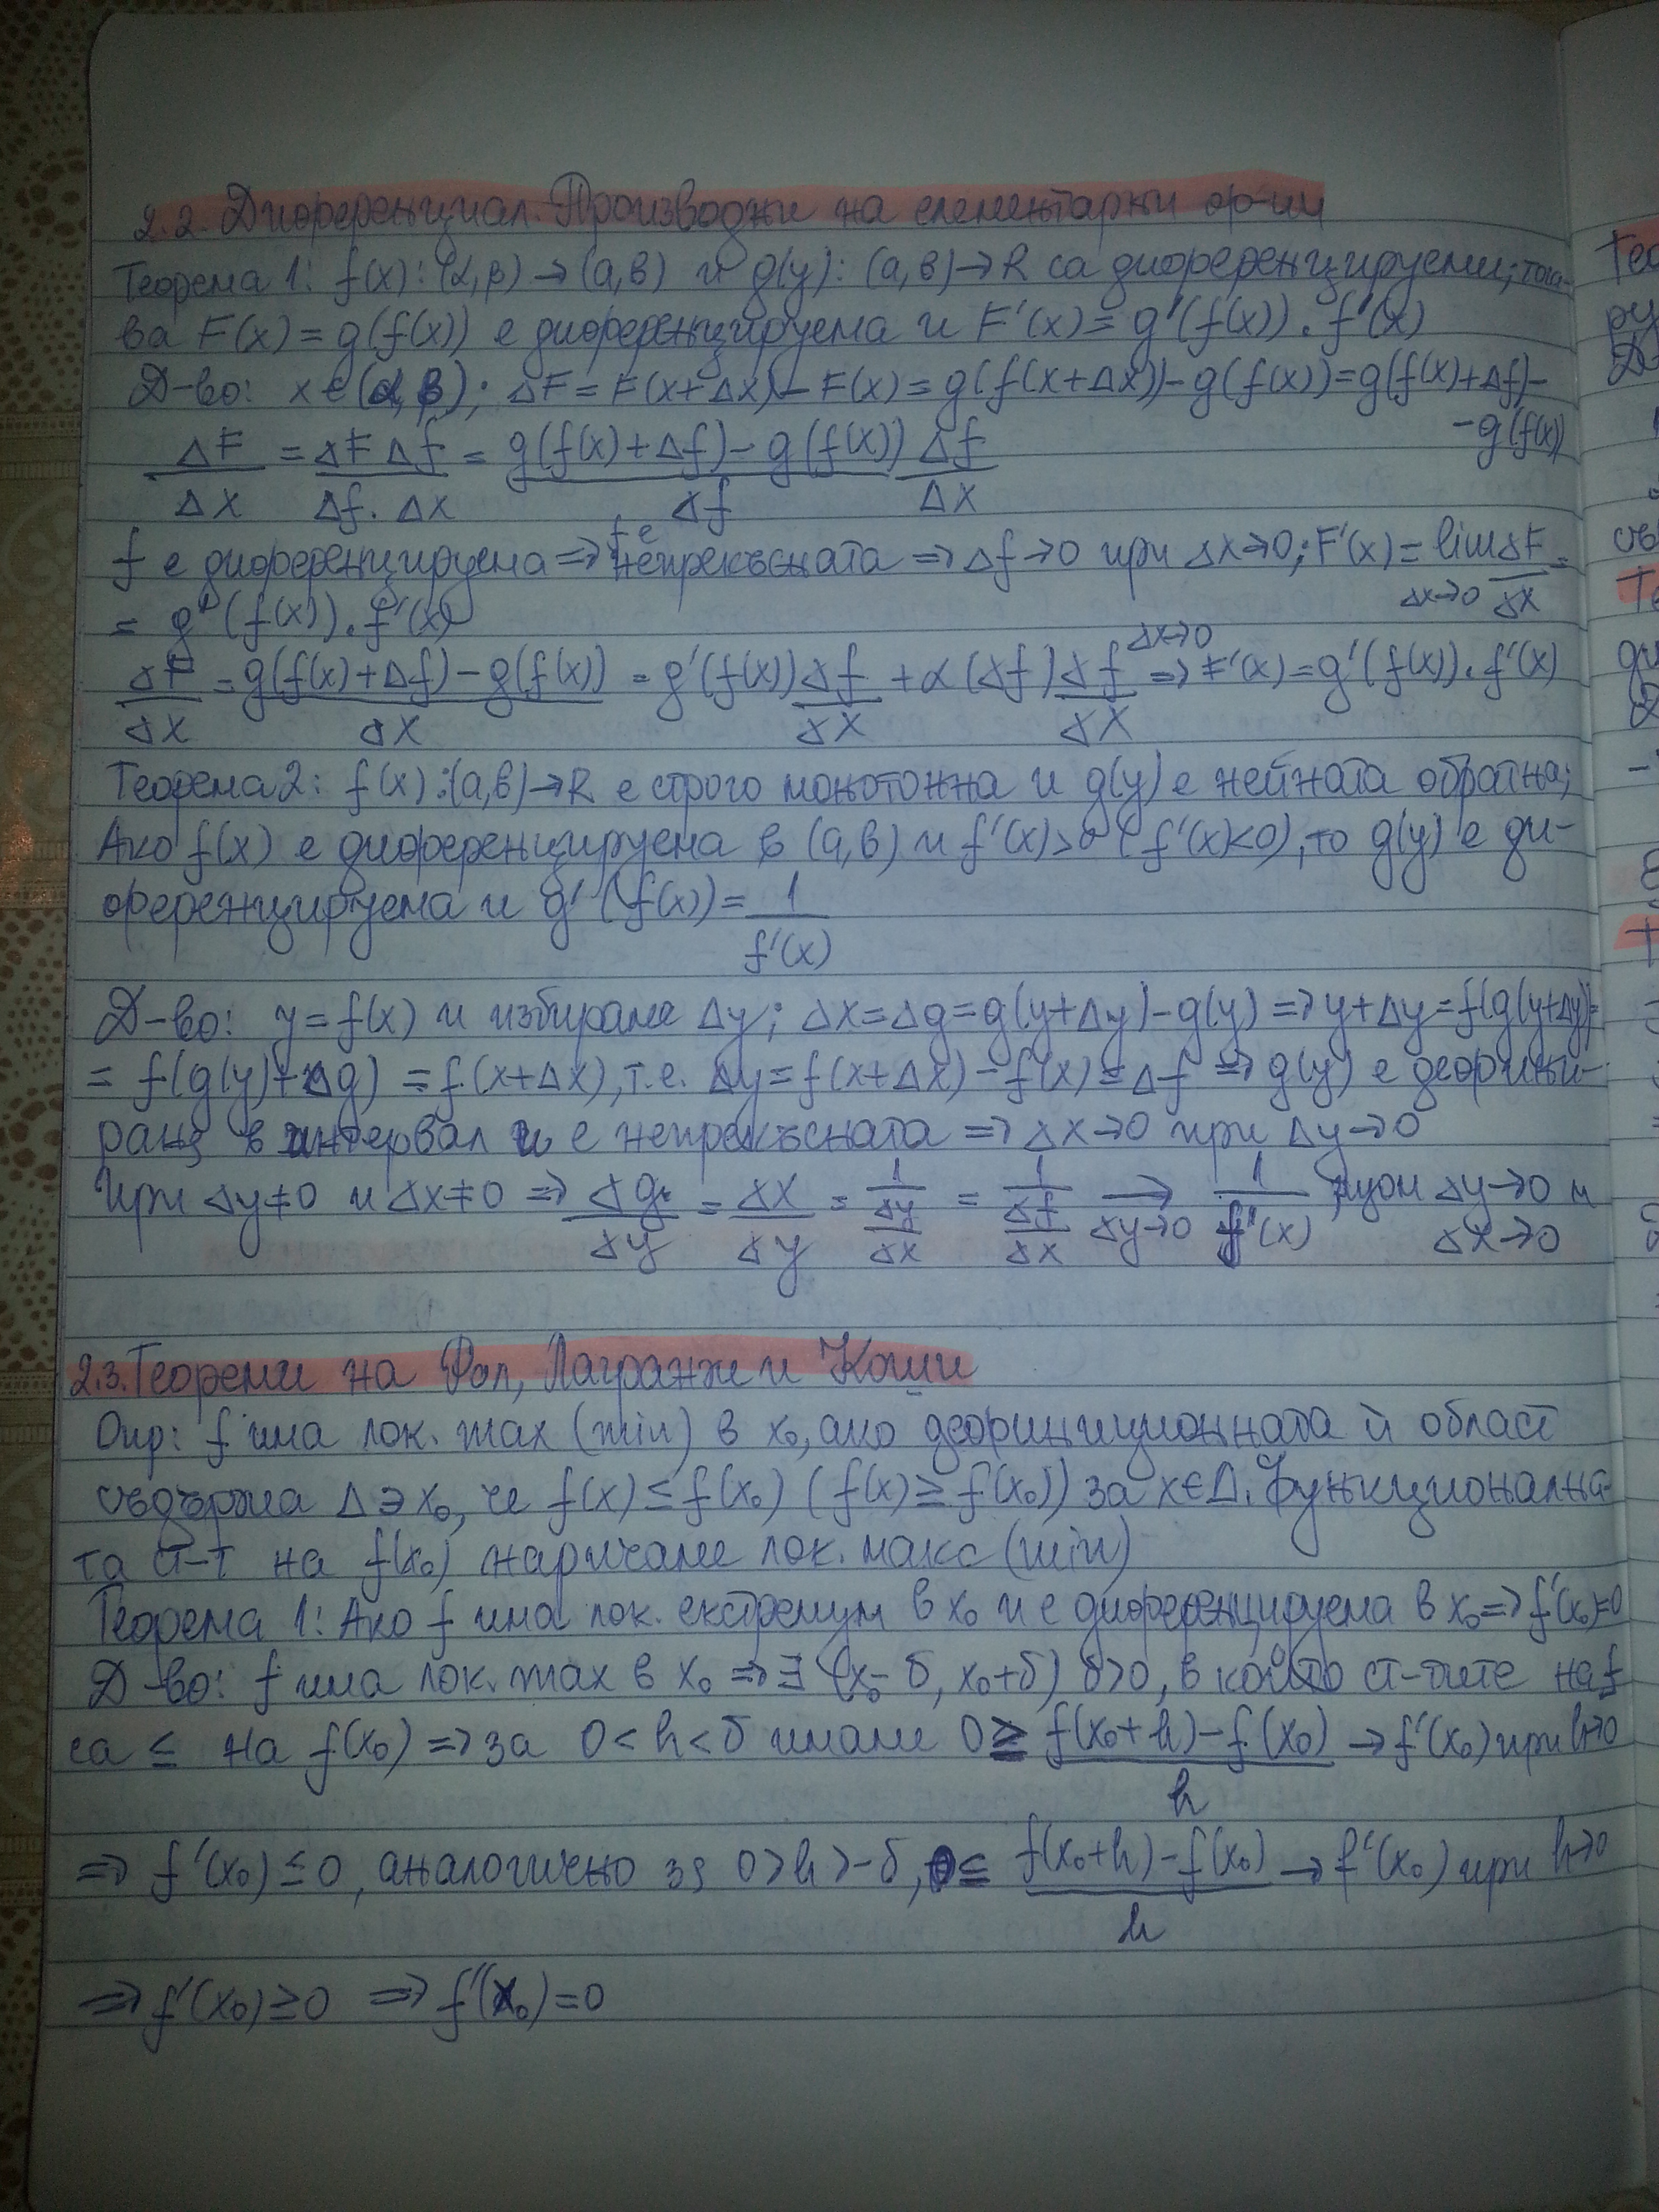 2.2. Диференциал. Производни на елементарни ф-ии
Теорема 1: f(x): (α,β) → (a,b) и g(y): (a,b) → R са диференцируеми; тога-
ва F(x) = g(f(x)) е диференцируема и F'(x) = g'(f(x)). f'(x)
Д-во: x ∈ (α,β); ΔF = F(x+Δx) - F(x) = g(f(x+Δx)) - g(f(x)) = g(f(x)+Δf) -
- g(f(x))
ΔF/Δx = ΔF Δf/Δf. Δx = g(f(x)+Δf) - g(f(x))/Δf Δf/Δx
f е диференцируема => f е непрекъсната => Δf→0 при Δx→0; F'(x) = lim Δx→0 ΔF/Δx =
= g'(f(x)). f'(x)
ΔF/Δx = g(f(x)+Δf) - g(f(x))/Δx = g'(f(x)) Δf/Δx + α(Δf) Δf/Δx Δx→0 => F'(x) = g'(f(x)). f'(x)
Теорема 2: f(x): (a,b) → R е строго монотонна и g(y) е нейната обратна;
Ако f(x) е диференцируема в (a,b) и f'(x)>0 (f'(x)<0), то g(y) е ди-
ференцируема и g'(f(x)) = 1/f'(x)
Д-во: y = f(x) и избираме Δy; Δx = Δg = g(y+Δy) - g(y) => y+Δy = f(g(y+Δy)) =
= f(g(y)+Δg) = f(x+Δx), т.е. Δy = f(x+Δx) - f(x) = Δf => g(y) е дефини-
рана в интервал и е непрекъсната => Δx→0 при Δy→0
При Δy≠0 и Δx≠0 => Δg/Δy = Δx/Δy = 1/(Δy/Δx) = 1/(Δf/Δx) → Δy→0 1/f'(x) при Δy→0 и Δx→0
2.3. Теореми на Рол, Лагранж и Коши
Опр: f има лок. max (min) в x₀, ако дефиниционната й област
съдържа Δ∋x₀, че f(x) ≤ f(x₀) (f(x) ≥ f(x₀)) за x∈Δ. Функционална-
та ст-т на f(x₀) наричаме лок. макс (min)
Теорема 1: Ако f има лок. екстремум в x₀ и е диференцируема в x₀ => f'(x₀)=0
Д-во: f има лок. max в x₀ => ∃ (x₀-δ, x₀+δ) δ>0, в който ст-тите на f
са ≤ на f(x₀) => за 0 < h < δ имаме 0 ≥ f(x₀+h) - f(x₀)/h → f'(x₀) при h→0
=> f'(x₀) ≤ 0, аналогично за 0 > h > -δ, 0 ≤ f(x₀+h) - f(x₀)/h → f'(x₀) при h→0
=> f'(x₀) ≥ 0 => f'(x₀) = 0